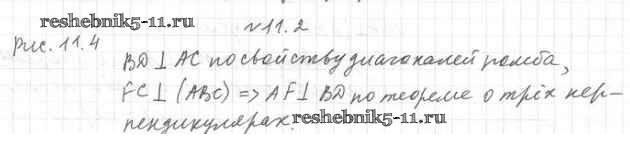 reshebnik5-11.ru
№11.2
Рис. 11.4
BD⊥AC по свойству диагоналей ромба,
FC⊥(ABC) => AF⊥BD по теореме о трёх пер-
пендикулярах.
reshebnik5-11.ru